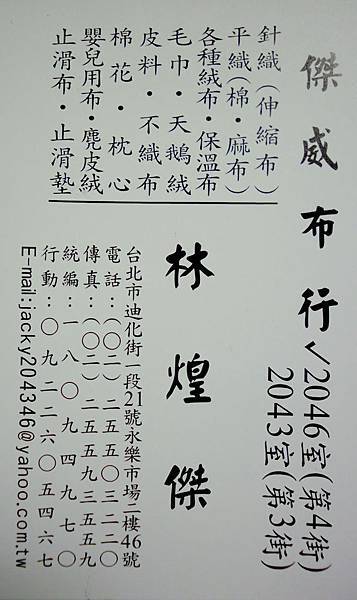 傑威布行✓2046室(第4街)
2043室(第3街)
針織(伸縮布)
平織(棉・麻布)
各種絨布・保溫布
毛巾・天鵝絨
皮料・不織布
棉花・枕心
嬰兒用布・麂皮絨
止滑布・止滑墊
林煌傑
台北市迪化街一段21號永樂市場二樓46號
電話:(〇二)二五五〇三二二〇
傳真:(〇二)二五五九三五五九
統編:一八〇九四九七〇
行動:〇九二二六〇五四六七
E-mail:jacky204346@yahoo.com.tw